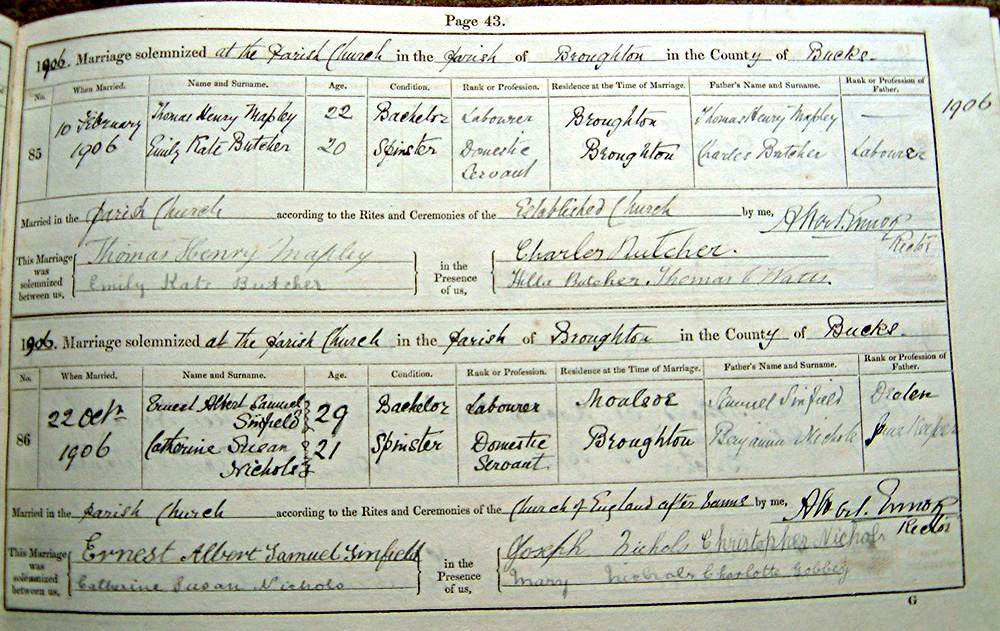 Page 43.
1906. Marriage solemnized at the Parish Church in the Parish of Broughton in the County of Bucks.
No. When Married. Name and Surname. Age. Condition. Rank or Profession. Residence at the Time of Marriage. Father's Name and Surname. Rank or Profession of Father.
1906
10 February Thomas Henry Mapley 22 Bachelor Labourer Broughton Thomas Henry Mapley —
85 1906 Emily Kate Butcher 20 Spinster Domestic Servant Broughton Charles Butcher Labourer
Married in the Parish Church according to the Rites and Ceremonies of the Established Church by me,
Rector
This Marriage was solemnized between us, Thomas Henry Mapley in the Presence of us, Charles Butcher.
Emily Kate Butcher Hilda Butcher. Thomas C Watts.
1906. Marriage solemnized at the Parish Church in the Parish of Broughton in the County of Bucks.
No. When Married. Name and Surname. Age. Condition. Rank or Profession. Residence at the Time of Marriage. Father's Name and Surname. Rank or Profession of Father.
22 Octr Ernest Albert Samuel Sinfield 29 Bachelor Labourer Moulsoe Samuel Sinfield
86 1906 Catherine Susan Nichols 21 Spinster Domestic Servant Broughton Nichols
Married in the Parish Church according to the Rites and Ceremonies of the Church of England after banns by me,
Rector
This Marriage was solemnized between us, Ernest Albert Samuel Sinfield in the Presence of us, Joseph Nichols Christopher Nichols
Catherine Susan Nichols Mary Nichols Charlotte Gobbey
G